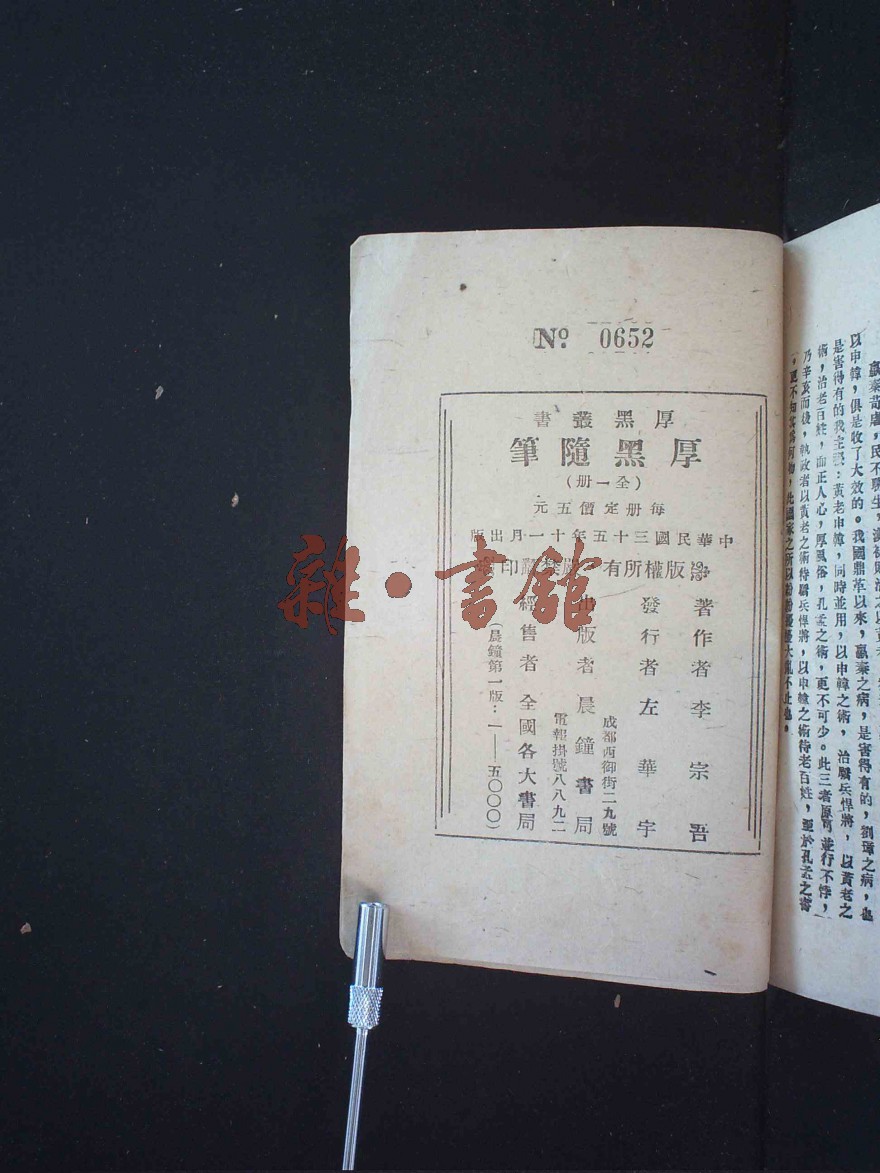 No 0652
厚黑叢書
厚黑隨筆
(全一册)
每册定價五元
中華民國三十五年十一月出版
版權所有 翻印
著作者 李宗吾
發行者 左華宇
成都西御街二九號
出版者 晨鐘書局
電報掛號八八九二
經售者 全國各大書局
(晨鐘第一版：一——五〇〇〇)
嬴秦苛虐，民不聊生，漢初則治之以黃老
以申韓，俱是收了大效的。我國鼎革以來，嬴秦之病，是害得有的，劉璋之病，也
是害得有的我主張：黃老申韓，同時並用，以申韓之術，治驕兵悍將，以黃老之
術，治老百姓，而正人心，厚風俗，孔孟之術，更不可少。此三者原可並行不悖，
乃辛亥而後，執政者以黃老之術待驕兵悍將，以申韓之術待老百姓，至於孔孟之書
，更不知其為何物，此國家之所以紛紛擾擾大亂不止也。
雜·書館